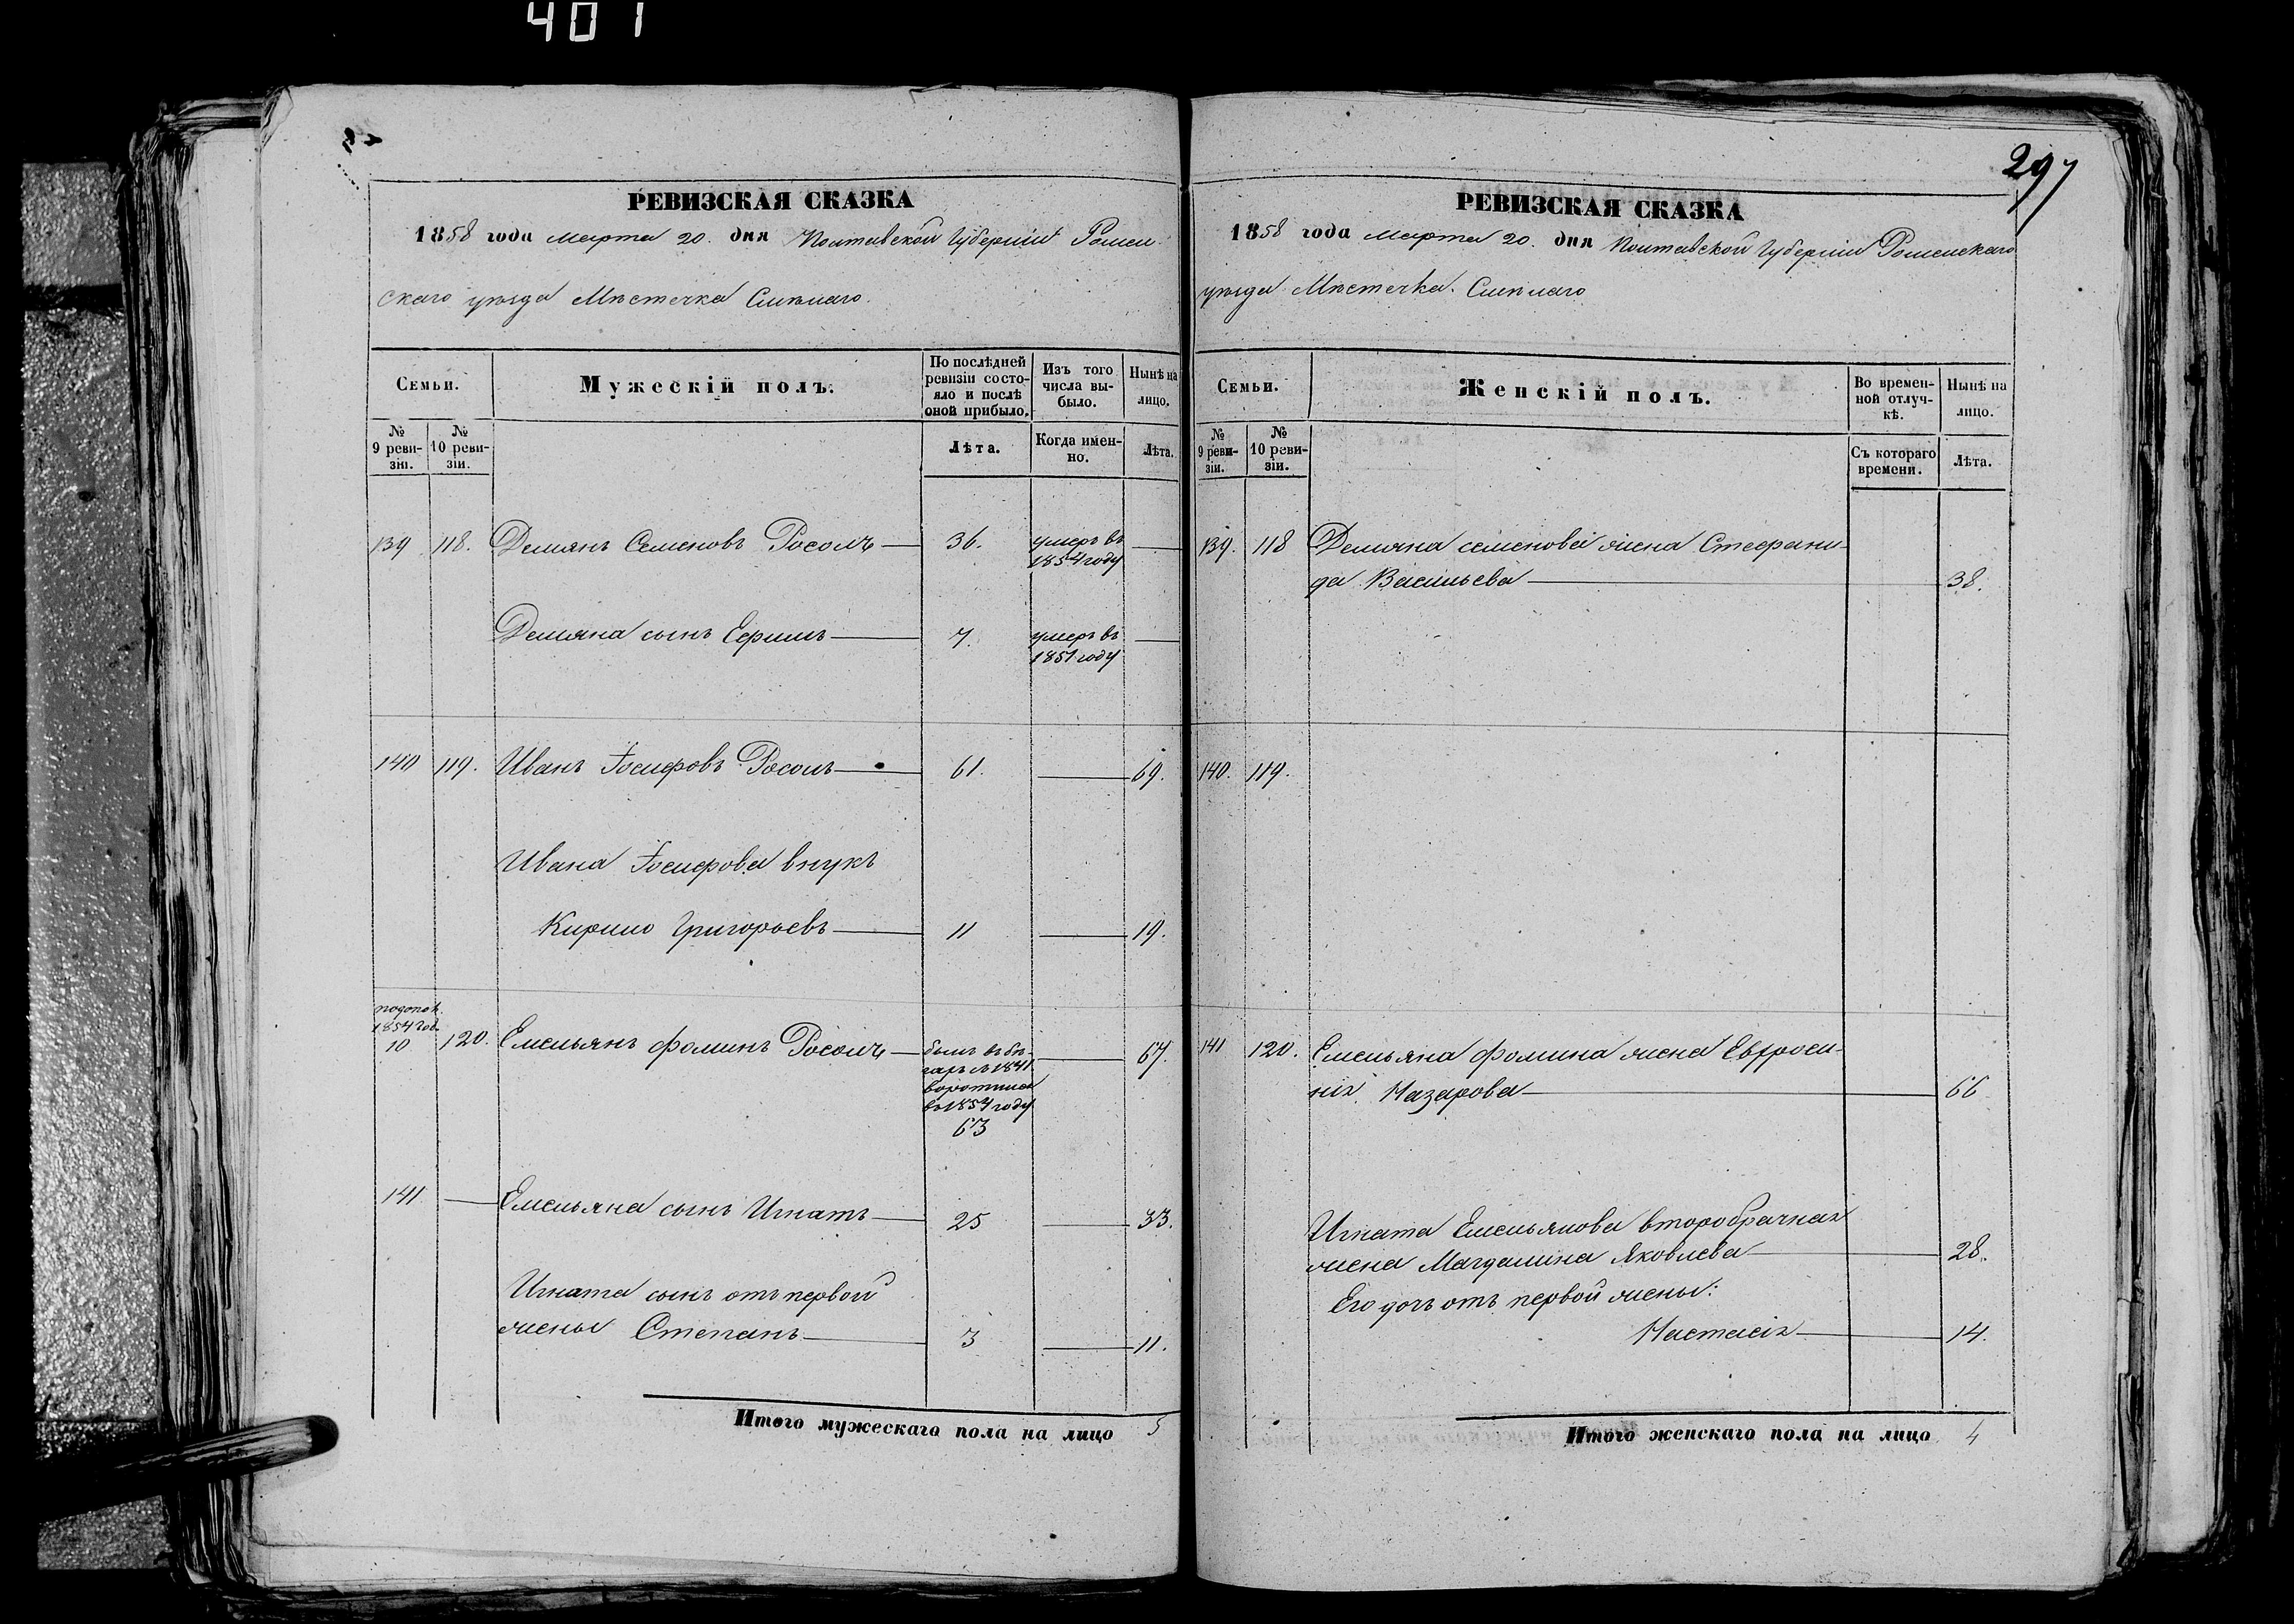 401
297
РЕВИЗСКАЯ СКАЗКА
1858 года марта 20. дня Полтавской Губерніи Ромен
скаго уѣзда Мѣстечка Смѣлаго.
Семьи.
Мужескій полъ.
По послѣдней ревизіи состояло и послѣ оной прибыло.
Изъ того числа выбыло.
Нынѣ на лицо.
№ 9 ревизіи.
№ 10 ревизіи.
Лѣта.
Когда именно.
Лѣта.
139 118. Демянъ Семеновъ Росолъ 36. умеръ въ
1854 году
Демяна сынъ Ефимъ 7. умеръ въ
1851 году
140 119. Иванъ Іосифовъ Росолъ 61. 69.
Ивана Іосифова внукъ
Кирило Григорьевъ 11 19.
1854 год.
10 120. Емельянъ Фоминъ Росолъ былъ въ бѣ-
гахъ съ 1841
воротился
въ 1854 году
63 67.
141. Емельяна сынъ Игнатъ 25 33.
Игната сынъ отъ первой
жены Степанъ 3 11.
Итого мужескаго пола на лицо 5
РЕВИЗСКАЯ СКАЗКА
1858 года марта 20. дня Полтавской Губерніи Роменскаго
уѣзда Мѣстечка Смѣлаго
Семьи.
Женскій полъ.
Во временной отлучкѣ.
Нынѣ на лицо.
№ 9 ревизіи.
№ 10 ревизіи.
Съ котораго времени.
Лѣта.
139. 118 Демяна Семенова жена Стефани-
да Васильева 38.
140. 119.
141 120. Емельяна Фомина жена Евфроси-
нія Назарова 66
Игната Емельянова второбрачная
жена Магдалина Яковлева 28.
Его дочь отъ первой жены:
Настасія 14.
Итого женскаго пола на лицо 4